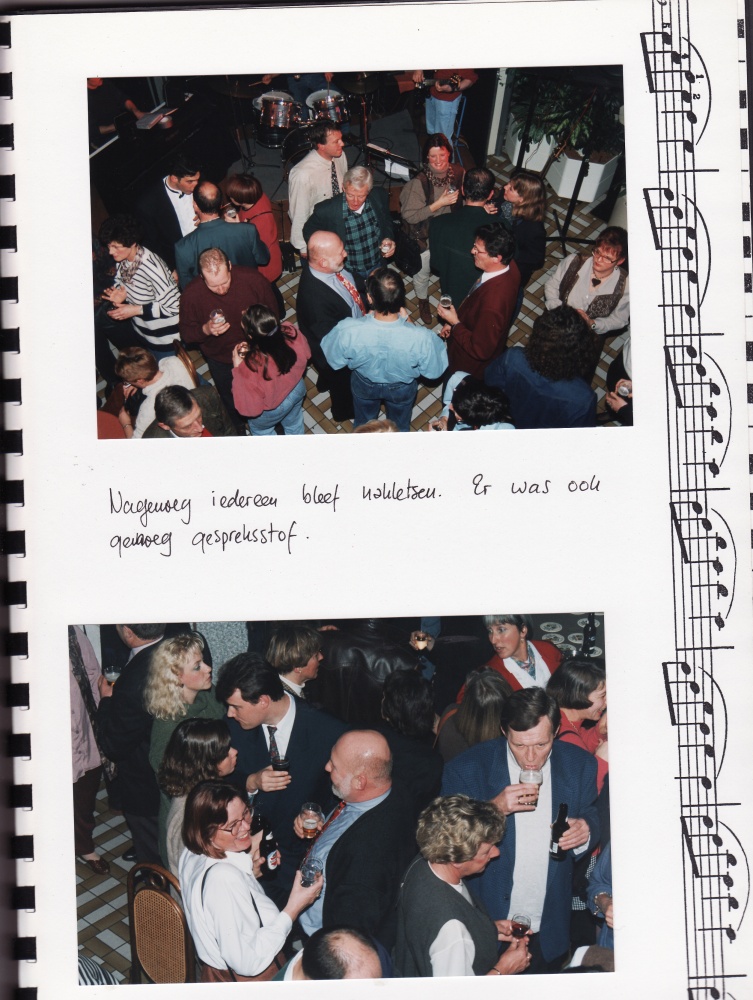 Nagenoeg iedereen bleef nakletsen. Er was ook
genoeg gespreksstof.